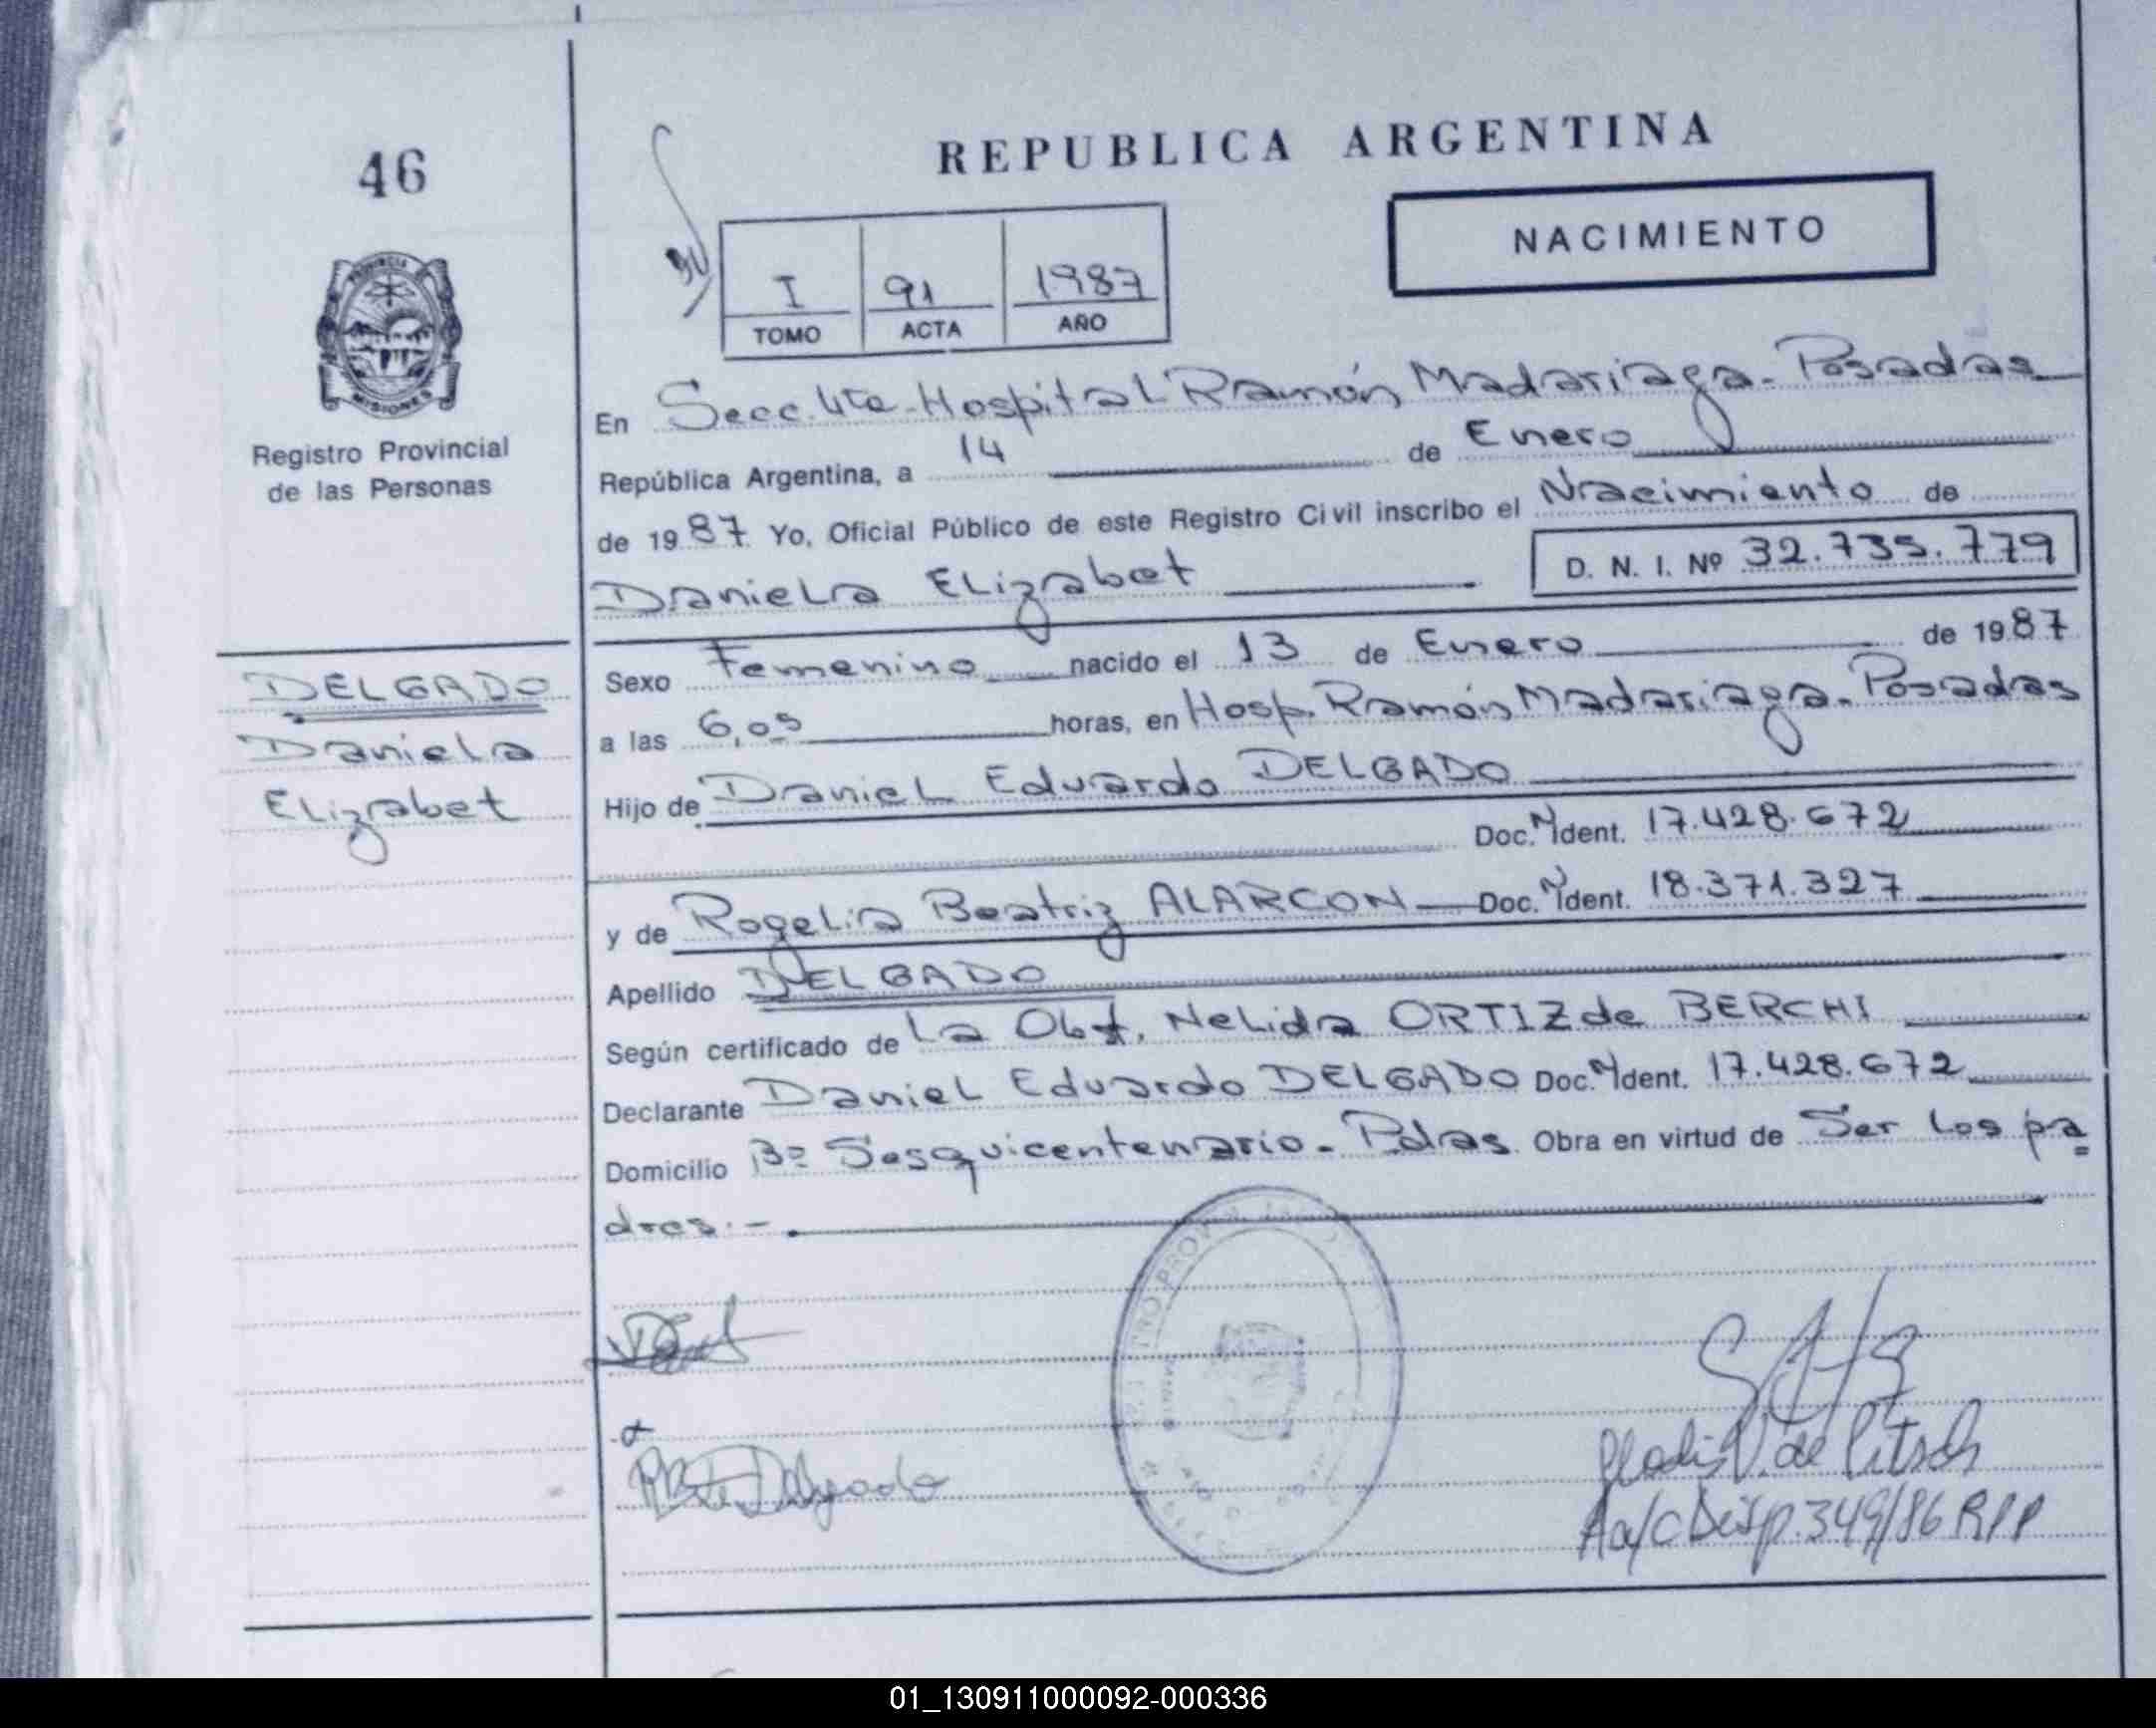 46
REPUBLICA ARGENTINA
NACIMIENTO
I 91 1987
TOMO ACTA AÑO
PROVINCIA
MISIONES
Registro Provincial
de las Personas
En Secc. 4ta - Hospital Ramón Madariaga - Posadas
República Argentina, a 14 de Enero
de 1987 Yo, Oficial Público de este Registro Civil inscribo el Nacimiento de
Daniela Elizabet D. N. I. Nº 32.735.779
DELGADO
Daniela
Elizabet
Sexo Femenino nacido el 13 de Enero de 1987
a las 6,05 horas, en Hosp. Ramón Madariaga - Posadas
Hijo de Daniel Eduardo DELGADO
Doc. N Ident. 17.428.672
y de Rogelia Beatriz ALARCON Doc. N Ident. 18.371.327
Apellido DELGADO
Según certificado de La Obst. Nelida ORTIZ de BERCHI
Declarante Daniel Eduardo DELGADO Doc. N Ident. 17.428.672
Domicilio Bº Sesquicentenario - Pdas. Obra en virtud de Ser los pa
dres.-
Delgado
Gladis V. de Pitsch
A/C Disp. 349/86 RPP
01_130911000092-000336